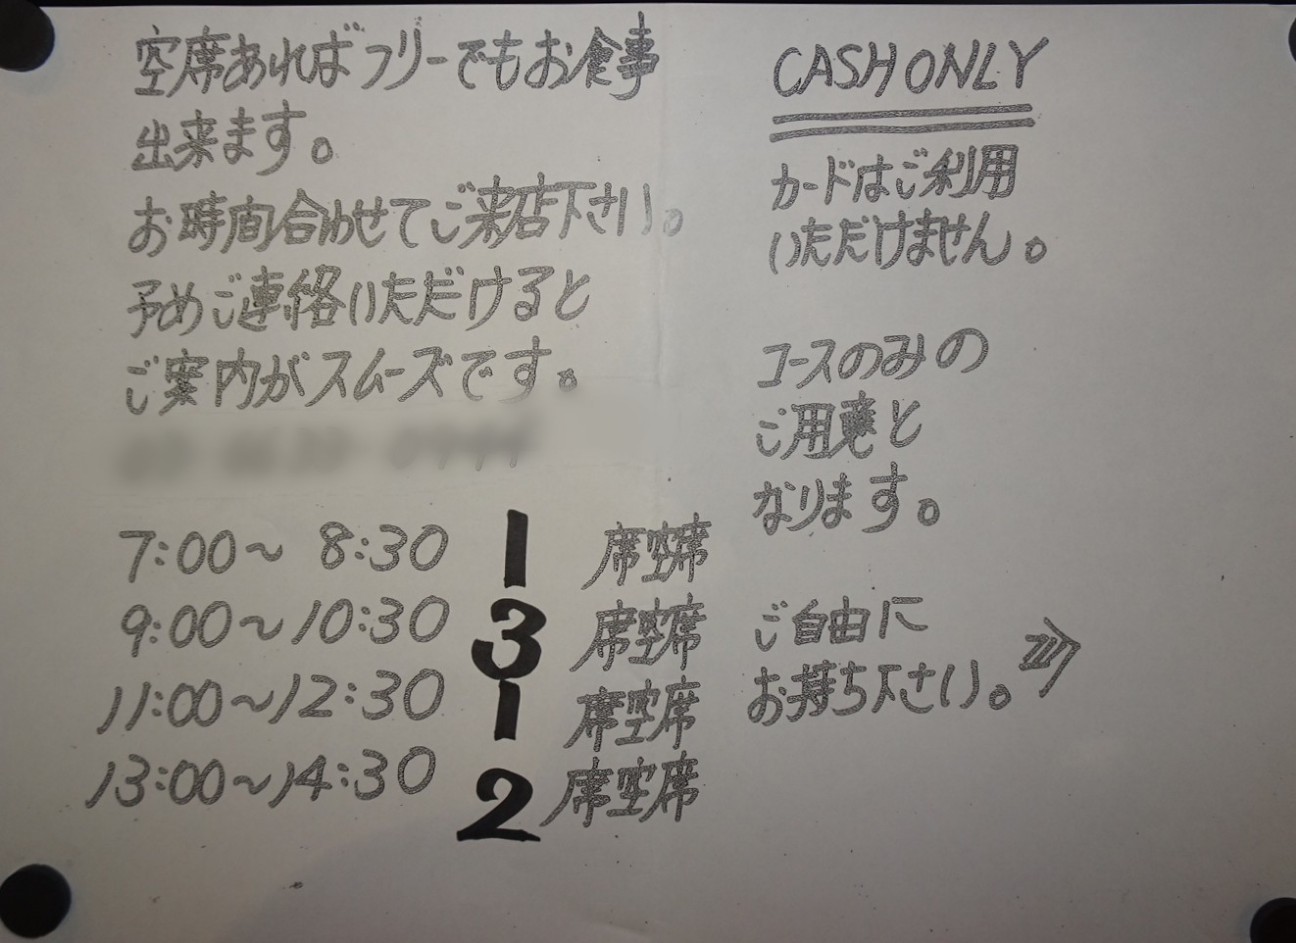 空席あればフリーでもお食事
出来ます。
お時間合わせてご来店下さい。
予めご連絡いただけると
ご案内がスムーズです。
7:00～ 8:30 1 席空席
9:00～10:30 3 席空席
11:00～12:30 1 席空席
13:00～14:30 2 席空席
CASH ONLY
カードはご利用
いただけません。
コースのみの
ご用意と
なります。
ご自由に
お持ち下さい。